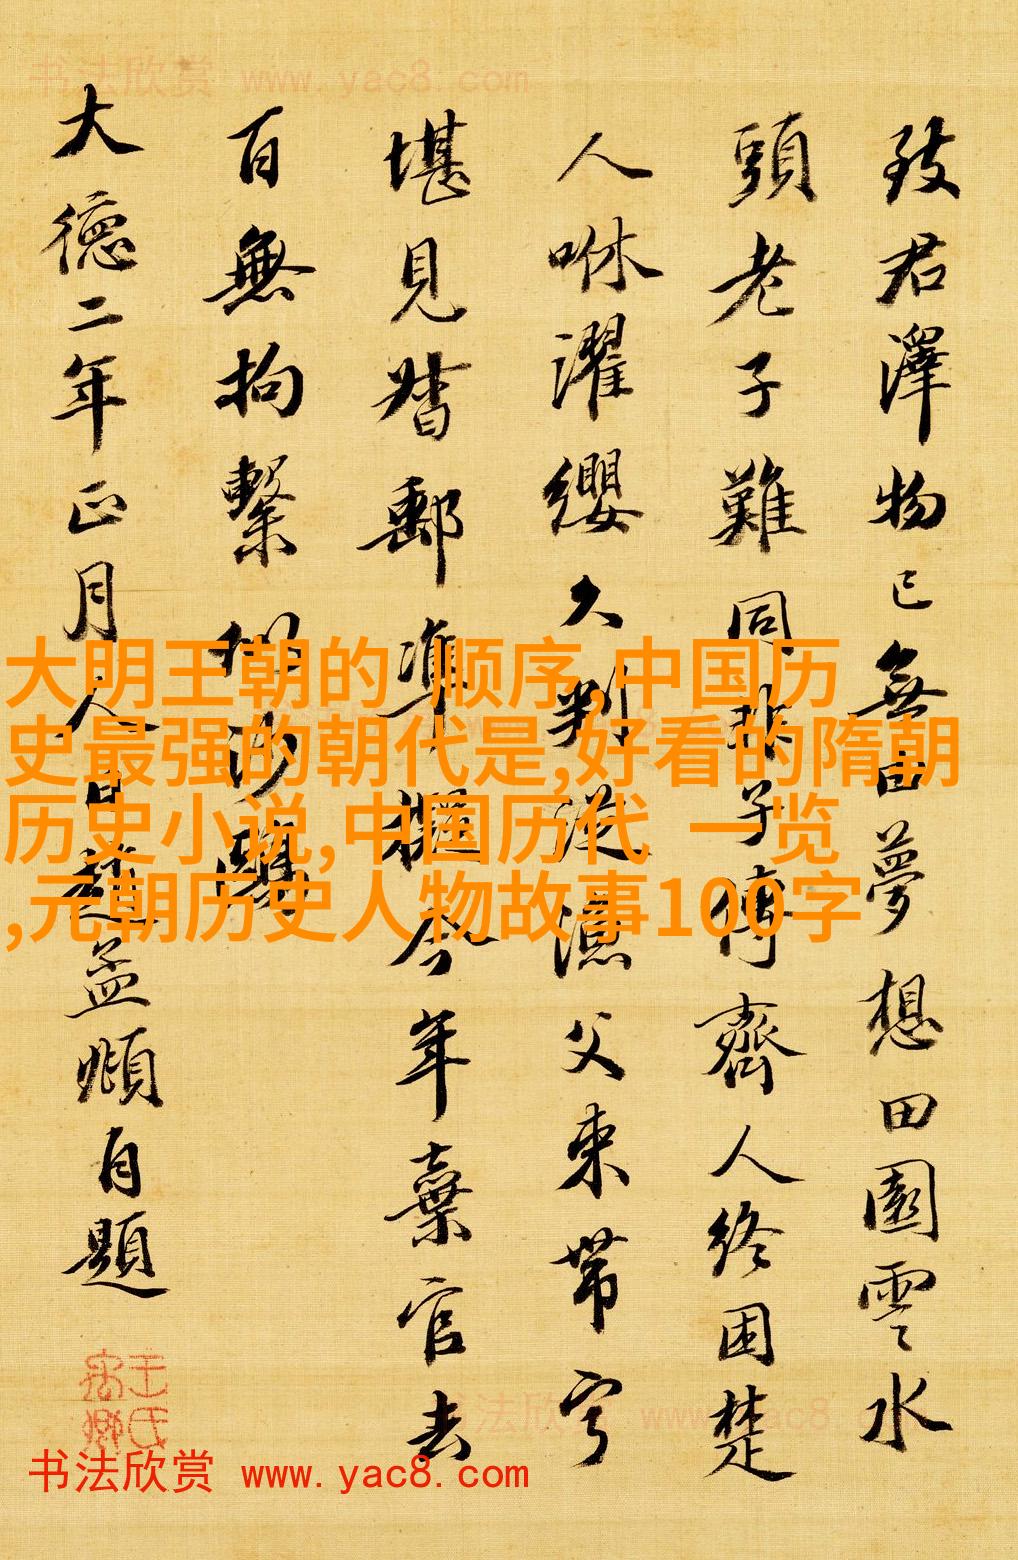 书法欣赏 www.yac8.com
致君澤物已無由夢想田園雲水
頭老子難同非子傳齊人終困楚
人咻濯纓久判從漁父束帶寧
堪見督郵準擬今年棄官去
百無拘繫似沙鷗
大德二年正月人日趙孟頫自題
大明王朝的 顺序,中国历
史最强的朝代是,好看的隋朝
历史小说,中国历代 一览
,元朝历史人物故事100字
书法欣赏 www.yac8.com
书法欣赏 www.yac8.com